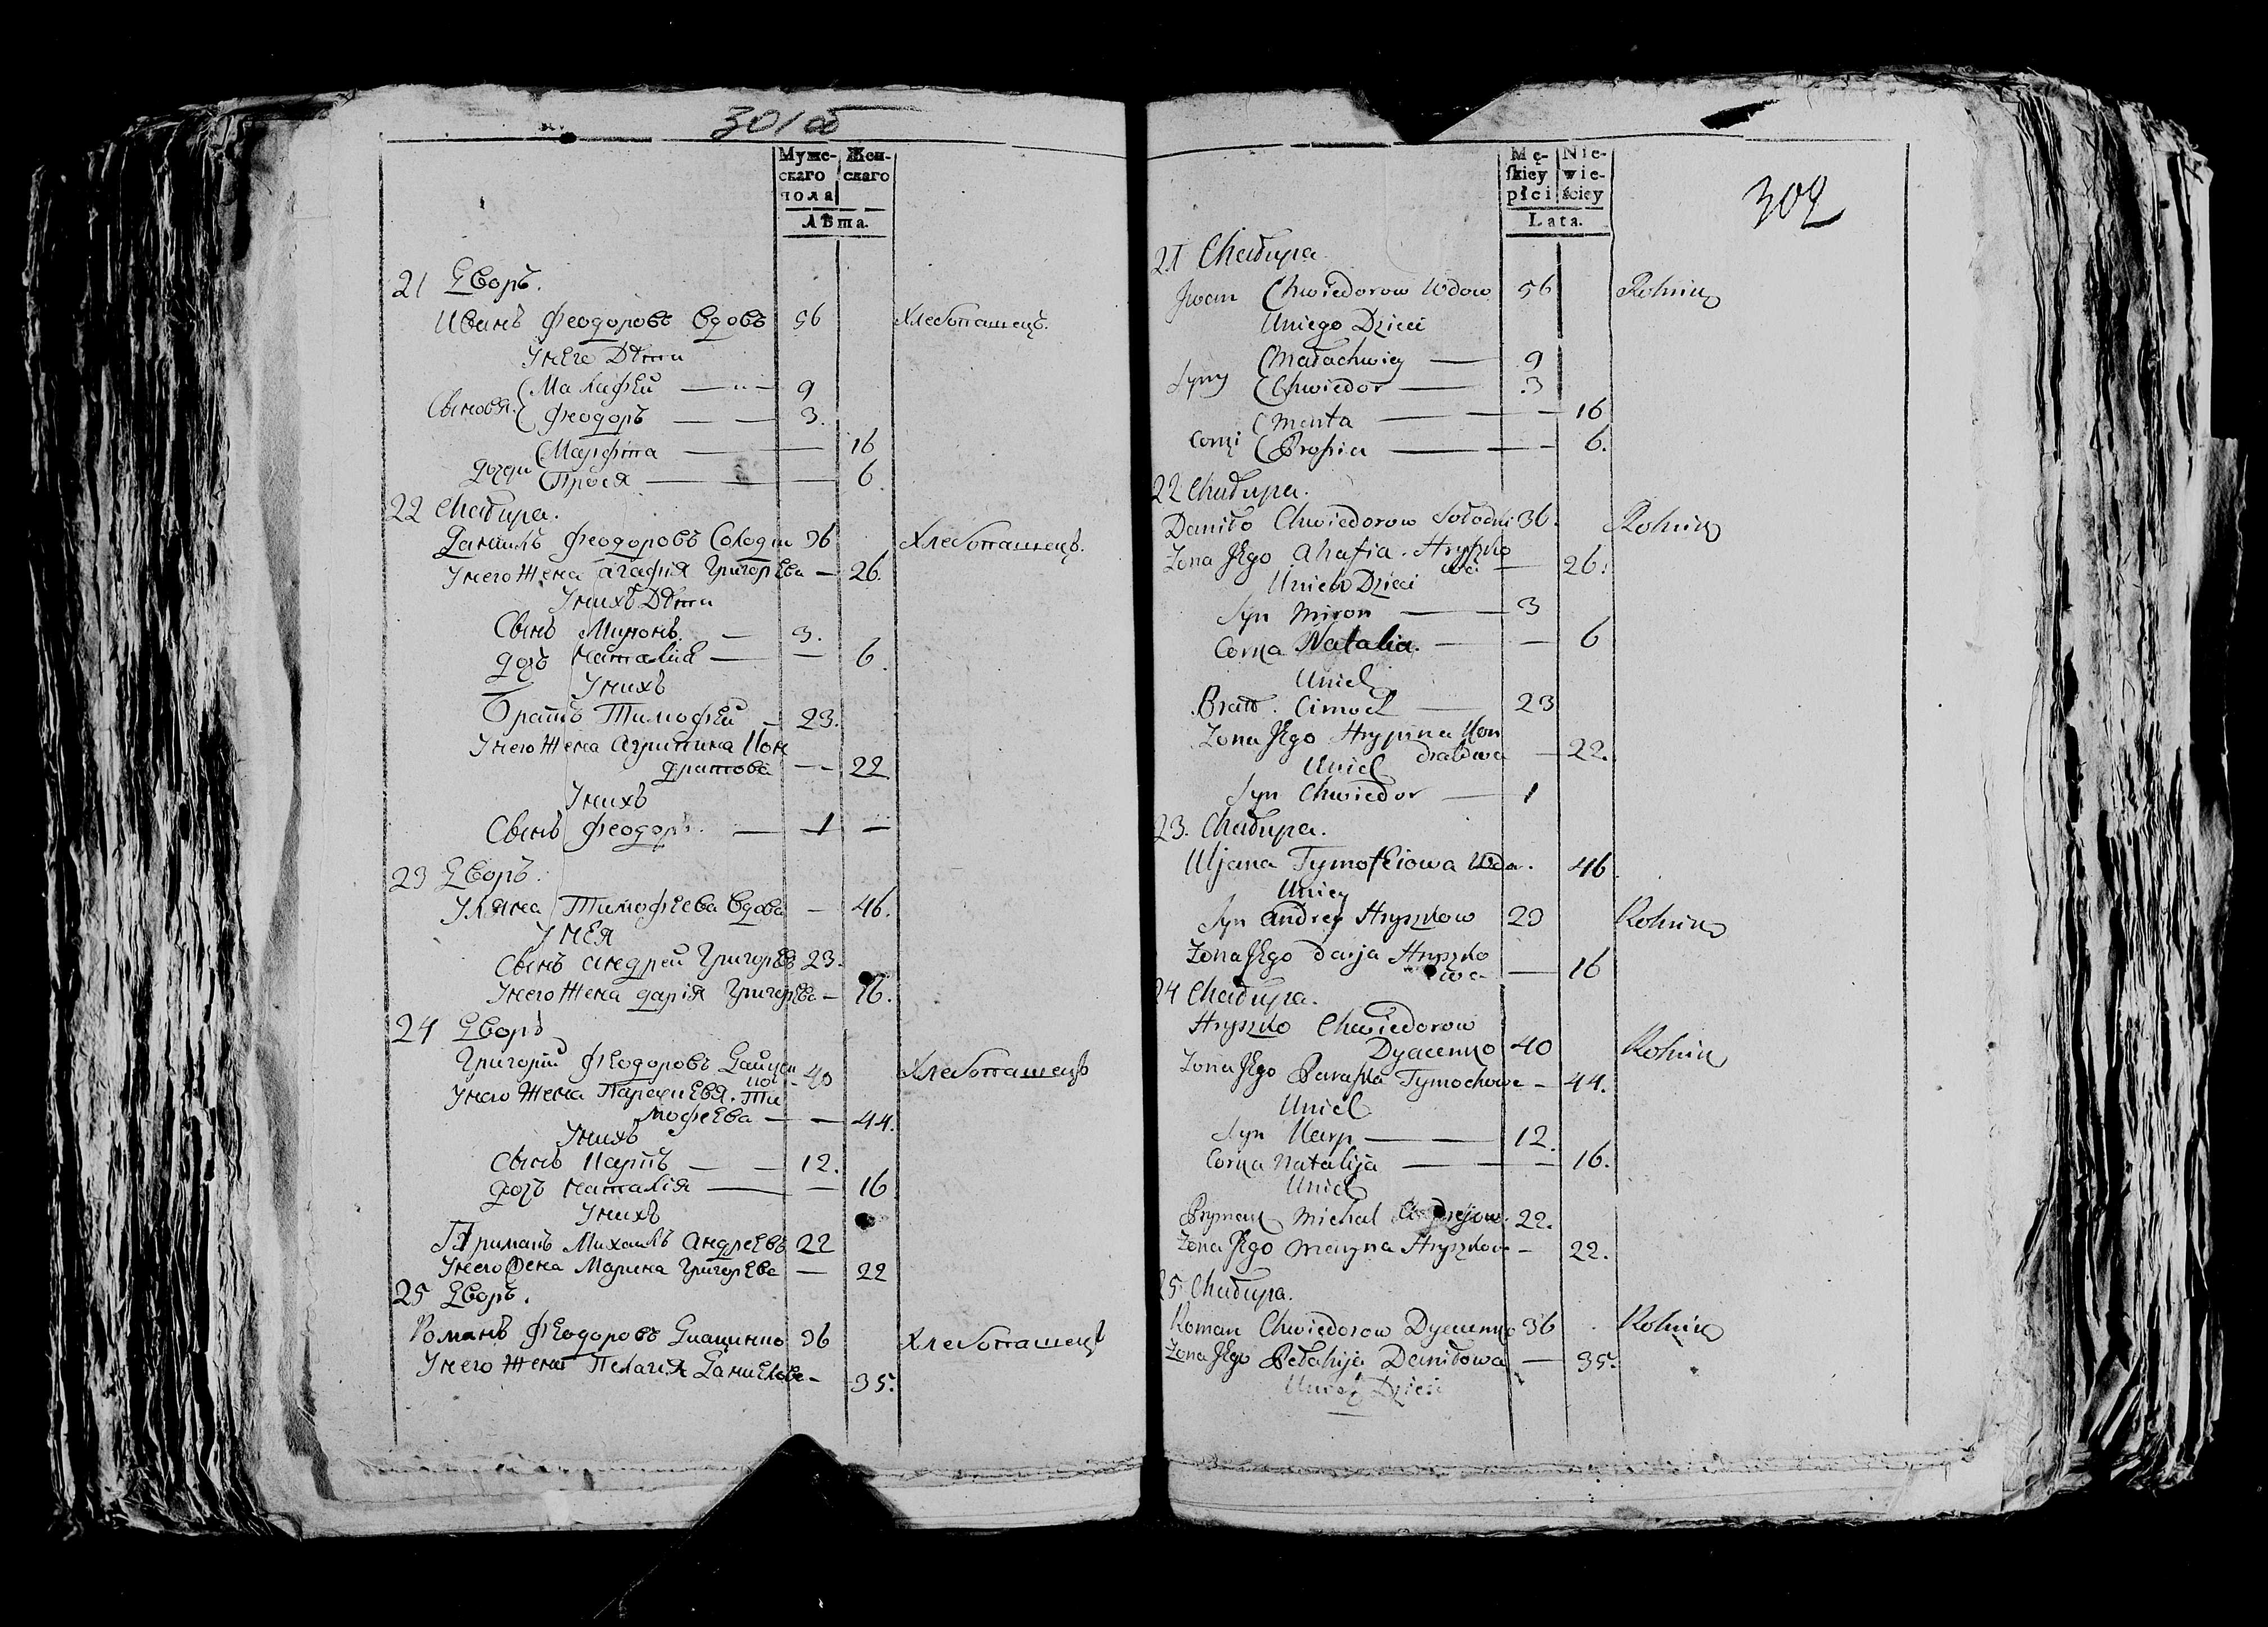 301 об
Муже- Жен-
скаго скаго
пола
Лѣта.
21 Дворъ.
Иванъ Феодоровъ Вдовъ 56 Хлебопашецъ.
Унего Дѣти
Малафей — 9
Сыновя. Феодоръ — 3.
Марфта — 16
дочери Прося — 6.
22 Chałupa.
Данилъ Феодоровъ Солодки 36 Хлебопашецъ.
Унего Жена Агафия Григорѣва — 26.
Унихъ Дѣти
Сынъ Миронъ. — 3.
дочъ Наталия — 6.
Унихъ
Братъ Тимофей — 23.
Унего Жена Агрипина Кон
дратова — 22
Унихъ
Сынъ Феодоръ. — 1 —
23 Дворъ.
Уляна Тимофѣева Вдова — 46.
Унея
Сынъ Андрей Григорѣвъ 23.
Унего Жена Дарія Григорѣва — 16.
24 Дворъ
Григорій Феодоровъ 40 Хлебопашецъ
Унего Жена Параскевя. Ти
мофѣева — 44.
Унихъ
Сынъ Карпъ — 12.
дочъ Наталія — 16
Унихъ
Приманъ Михаилъ Андреевъ 22
Унего Жена Марина Григорѣва — 22
25 Дворъ.
Романъ Феодоровъ 36 Хлебопашецъ
Унего Жена Пелагия Данилова — 35.
Mę- Nie-
skiey wie-
płci ściey
Lata.
302
21 Chałupa.
Jwan Chwiedorow Wdow 56 Rolnik
Uniego Dzieci
Małachwiey — 9
Syny Chwiedor — 3
Marta — 16
Corki Prosia — 6.
22 Chałupa.
Daniło Chwiedorow Sołodki 36. Rolnik
Zona Jego Ahafia. Hryszko
wa — 26.
Unich Dzieci
Syn Miron — 3
Corka Natalia. — 6
Unich
Brat. Cimoch — 23
Zona Jego Hrypina Kon
dratowa — 22.
Unich
Syn Chwiedor — 1
23. Chałupa.
Uljana Tymofeiowa Wda. 46.
Uniey
Syn Andrey Hryszkow 23 Rolnik
Zona Jego Darja Hryszko
wa — 16
24 Chałupa.
Hryszko Chwiedorow
Dyacenko 40 Rolnik
Zona Jego Paraska Tymochowa — 44.
Unich
Syn Karp — 12.
Corka Natalija — 16.
Unich
Prymak Michał Andrejow. 22.
Zona Jego Maryna Hryszkow — 22.
25 Chałupa.
Roman Chwiedorow Dyacenko 36 Rolnik
Zona Jego Pełahija Daniłowa — 35.
Unich Dzieci